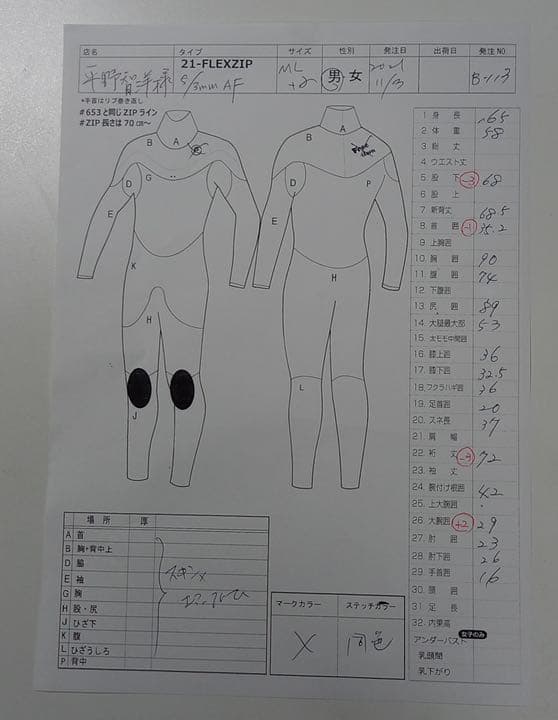 店名 タイプ サイズ 性別 発注日 出荷日 発注NO
平野智洋様 21-FLEXZIP ML 男 女 2021 B-113
5/3mm AF +2 11/13
*手首はリブ巻き返し
#653と同じZIPライン
#ZIP長さは70cm~
B A A B
G D D P
E E
K H
H
J L
1 身 長 165
2 体 重 58
3 総 丈
4 ウエスト丈
5 股 下 -3 68
6 股 上
7 新背丈 68.5
8 首 囲 -1 35.2
9 上胸囲
10. 胸 囲 90
11. 腹 囲 74
12. 下腹囲
13. 尻 囲 89
14. 大腿最大部 53
15. 太モモ中間囲
16. 膝上囲 36
17. 膝下囲 32.5
18. フクラハギ囲 36
19. 足首囲 20
20. スネ長 37
21. 肩 幅
22. 裄 丈 -3 72
23. 袖 丈
24. 腕付け根囲 42
25. 上大腕囲
26. 大腕囲 +2 29
27. 肘 囲 23
28. 肘下囲 26
29. 手首囲 16
30. 頭 囲
31. 足 長
32. 内東高
女子のみ
アンダーバスト
乳頭間
乳下がり
場所 厚
A 首
B 胸+背中上
D 脇
E 袖
G 胸
H 股・尻
J ひざ下
K 腹
L ひざうしろ
P 背中
マークカラー ステッチカラー
X 同色